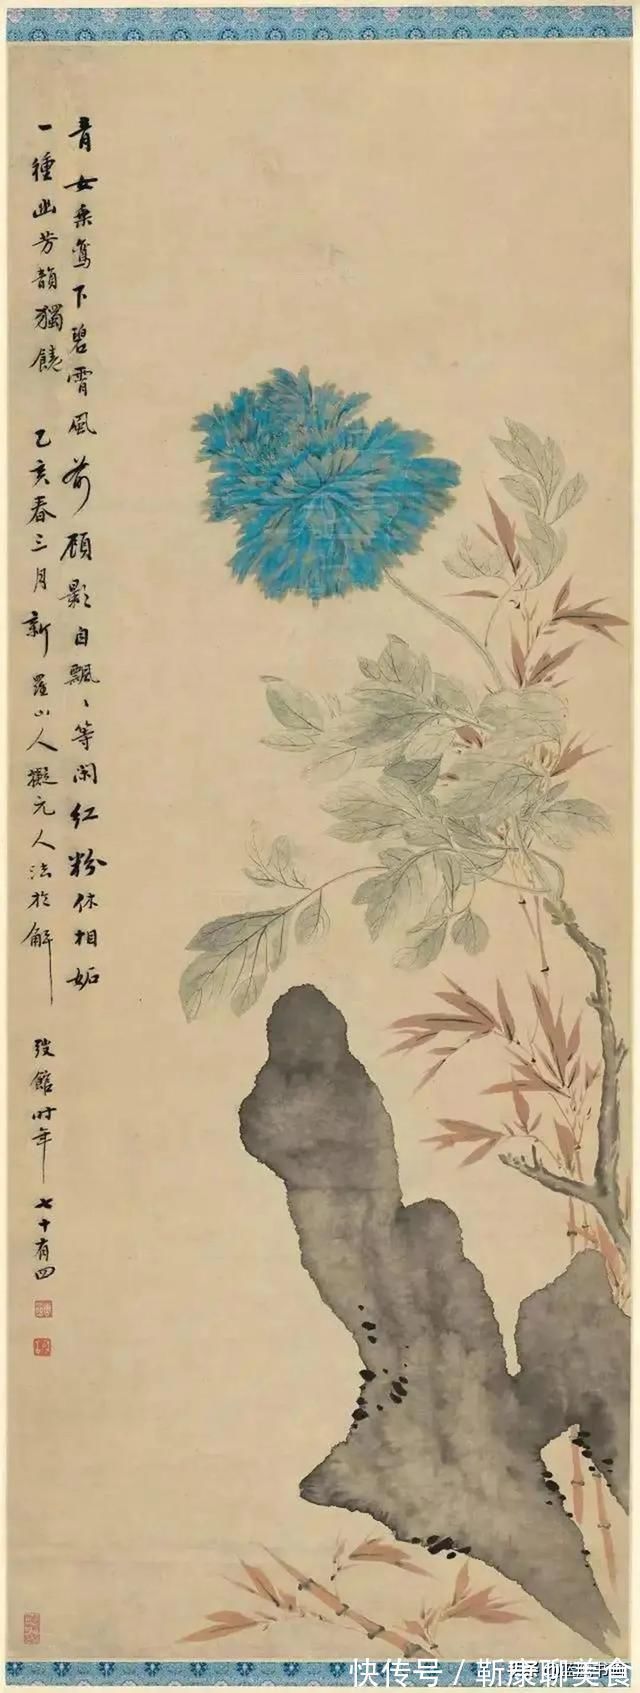 青女乘鸾下碧霄風前顧影自飄〻等闲红粉休相妬
一種幽芳韻獨饒 乙亥春三月新羅山人擬元人法於解弢館时年七十有四
快传号 / 靳康聊美食